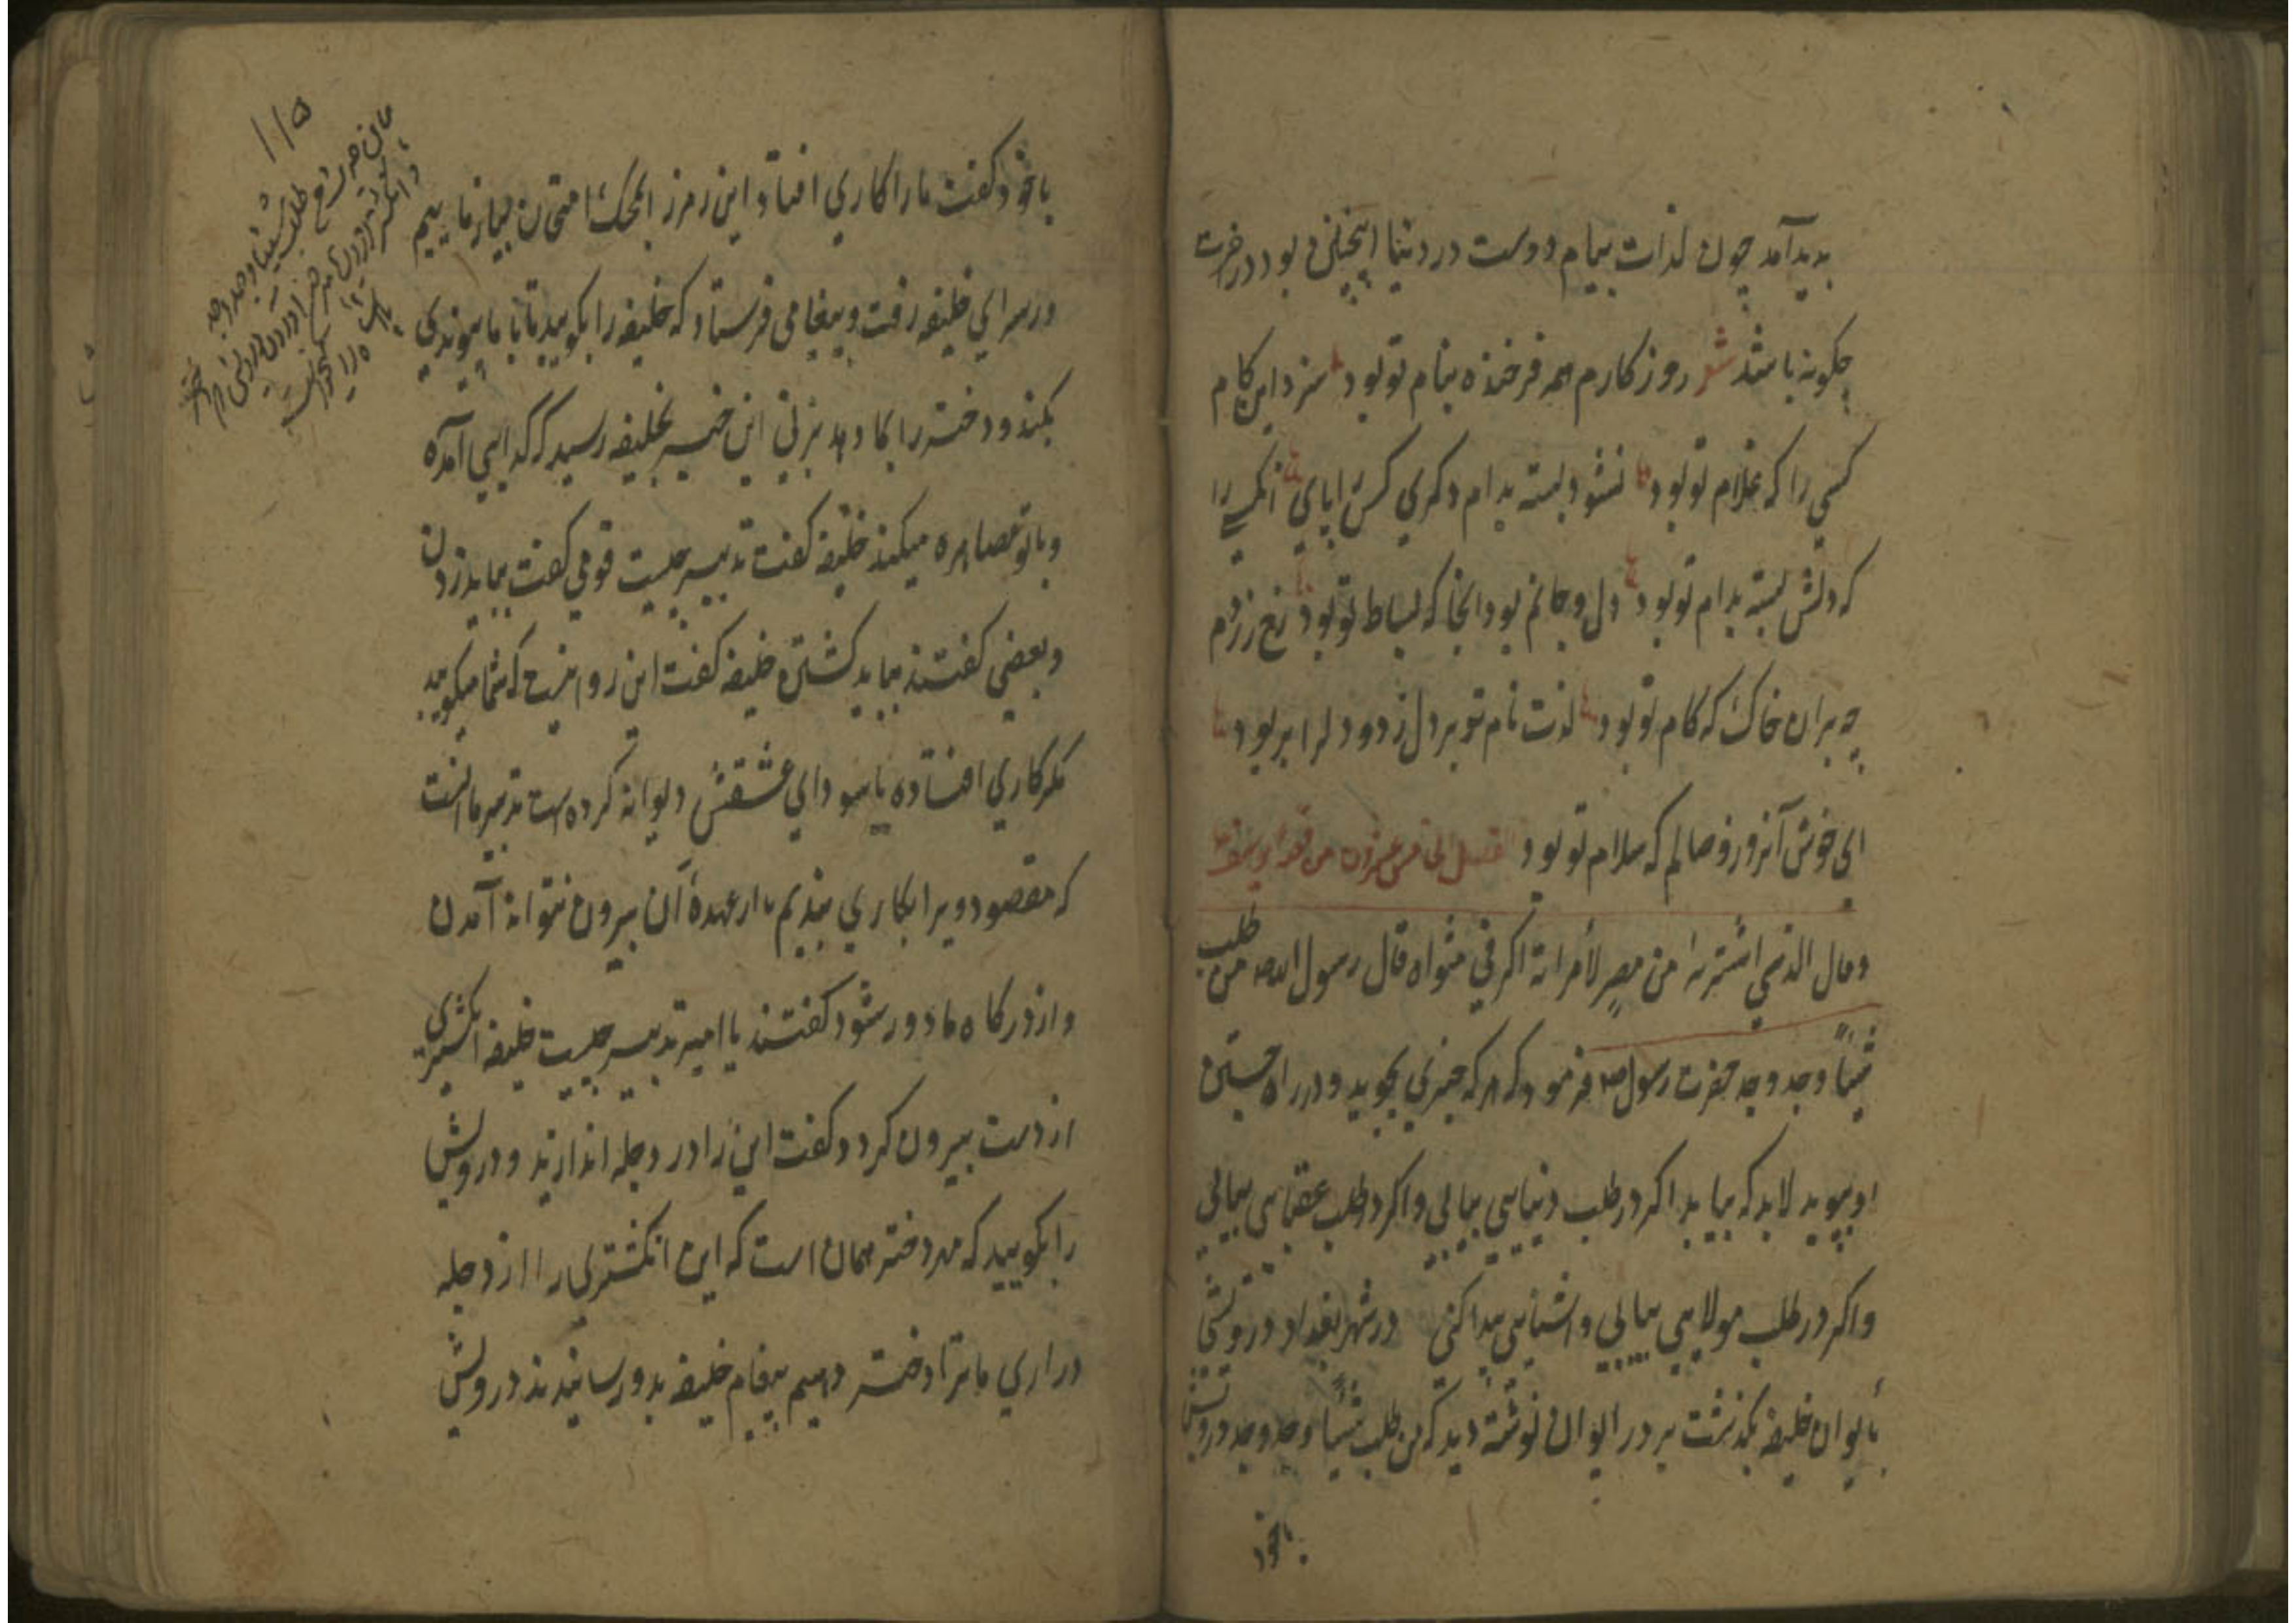 بدید آمد چون لذات پیام دوست در دنیا اینچنین بود در اخرت
چکونه باشد شعر روزکارم همه فرخنده بنام تو بود سزد این کام
کسی را که غلام تو بود نشود بسته بدام دکری کس را پای انکس را
که دلش بسته بدام تو بود دل و جانم بود انجا که بساط تو بود رخ زردم
چه بران خاک که کام تو بود لذت نام تو بر دل زدود
ای خوش آنروز وصالم که سلام تو بود
وقال الذی اشتریه من مصر لأمراته اکرمی مثواه قال رسول الله ص من طلب
شیئاً وجد وجد حضرت رسول ص فرمود که هر که چیزی بجوید و در راه جستن
او بپوید لابد که بیابد اکر در طلب دنیایی بیابی و اکر در طلب عقبایی بیابی
و اکر در طلب مولایی بیابی و اشنایی پیدا کنی در شهر بغداد درویشی
بأیوان خلیفه بکذشت بر در ایوان نوشته دید که من طلب شیئاً وجد وجد درویش
باخود
۱۱۵
باخود کفت ما را کاری افتاد این رمز را بمحک امتحان بیازماییم
در سرای خلیفه رفت و پیغامی فرستاد که خلیفه را بکویید تا با ما پیوندی
بکند و دختر را بما دهد بزنی این خبر بخلیفه رسید که کدایی آمده
و با تو مصاهره میکند خلیفه کفت تدبیر چیست قومی کفت بباید زدن
و بعضی کفتند بباید کشتن خلیفه کفت این روا نیست که شما میکویید
مکر کاری افتاده یا سودای عشقش دیوانه کرده است تدبیر ما انست
که مقصود ویرا بکاری بندیم تا از عهدهٔ آن بیرون نتواند آمدن
و از درکاه ما دور شود کفتند یا امیر تدبیر چیست خلیفه انکشتری
از دست بیرون کرد و کفت این را در دجله اندازند و درویش
را بکویید که مهر دختر همان است که این انکشتری را از دجله
در اری ما ترا دختر دهیم پیغام خلیفه بدو رسانیدند درویش